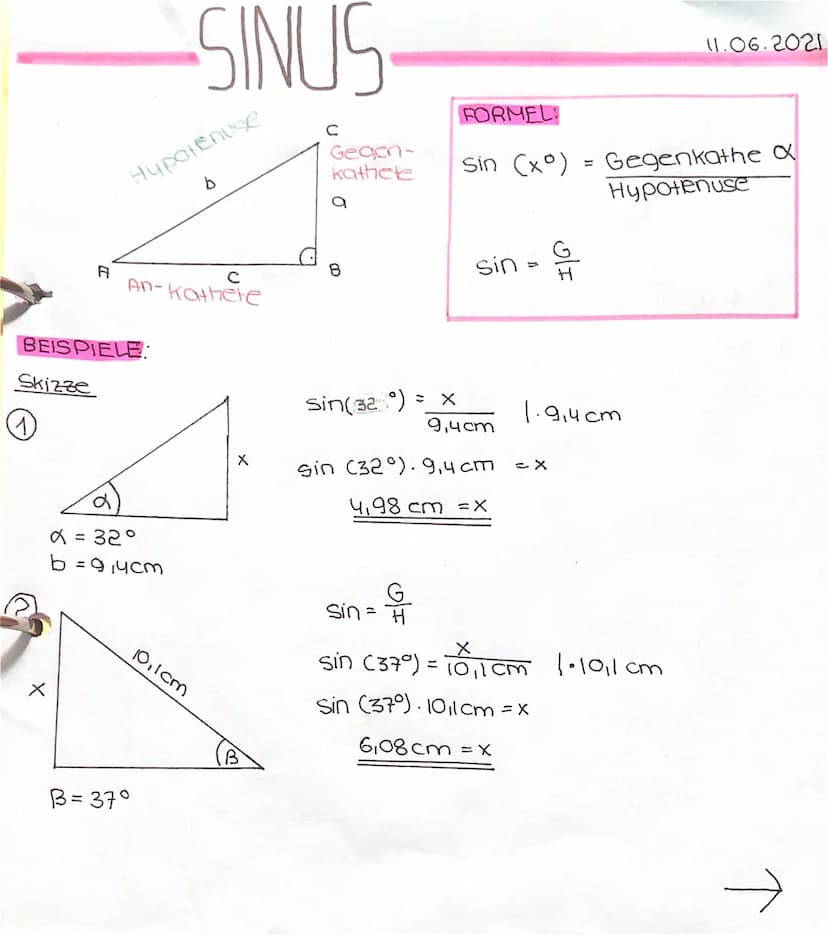 SINUS
11.06.2021
Hypotenuse
b
C
Gegen-
kathete
a
A
C
B
An-Kathete
FORMEL:
sin (x°) = Gegenkathe α / Hypotenuse
sin = G / H
BEISPIELE:
Skizze
1
α
x
α = 32°
b = 9,4cm
sin(32°) = x / 9,4cm | · 9,4cm
sin (32°) · 9,4cm = x
4,98 cm = x
2
10,1cm
x
β
β = 37°
sin = G / H
sin (37°) = x / 10,1cm | · 10,1 cm
sin (37°) · 10,1cm = x
6,08cm = x